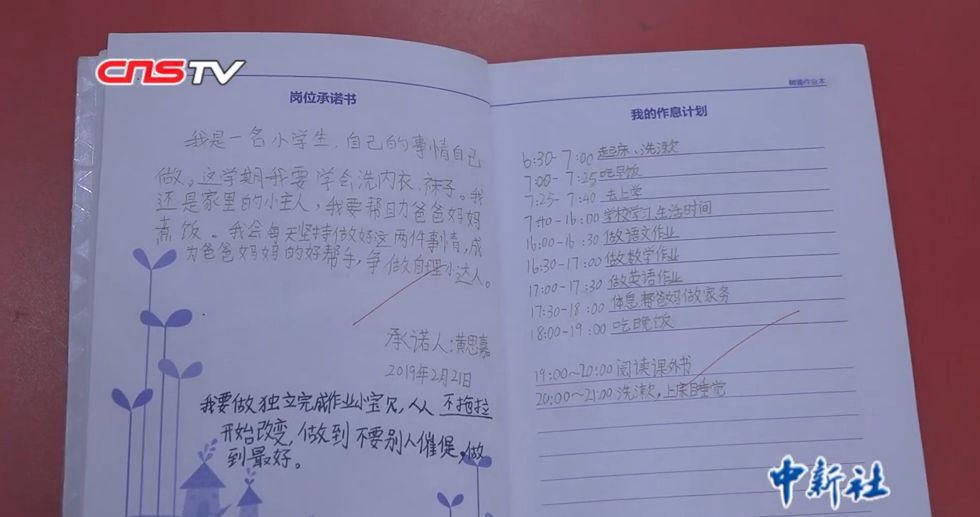 CNSTV
岗位承诺书
我是一名小学生,自己的事情自己
做。这学期我要学会洗内衣、袜子。我
还是家里的小主人,我要帮助爸爸妈妈
煮饭。我会每天坚持做好这两件事情,成
为爸爸妈妈的好帮手,争做自理小达人。
承诺人:黄思嘉
2019年2月21日
我要做独立完成作业小宝贝,从不拖拉
开始改变,做到不要别人催促,做
到最好。
作业本
我的作息计划
6:30-7:00起床、洗漱
7:00-7:25吃早饭
7:25-7:40去上学
7:40-16:00学校学习生活时间
16:00-16:30做语文作业
16:30-17:00做数学作业
17:00-17:30做英语作业
17:30-18:00休息,帮爸妈做家务
18:00-19:00吃晚饭
19:00~20:00阅读课外书
20:00~21:00洗漱,上床睡觉
中新社